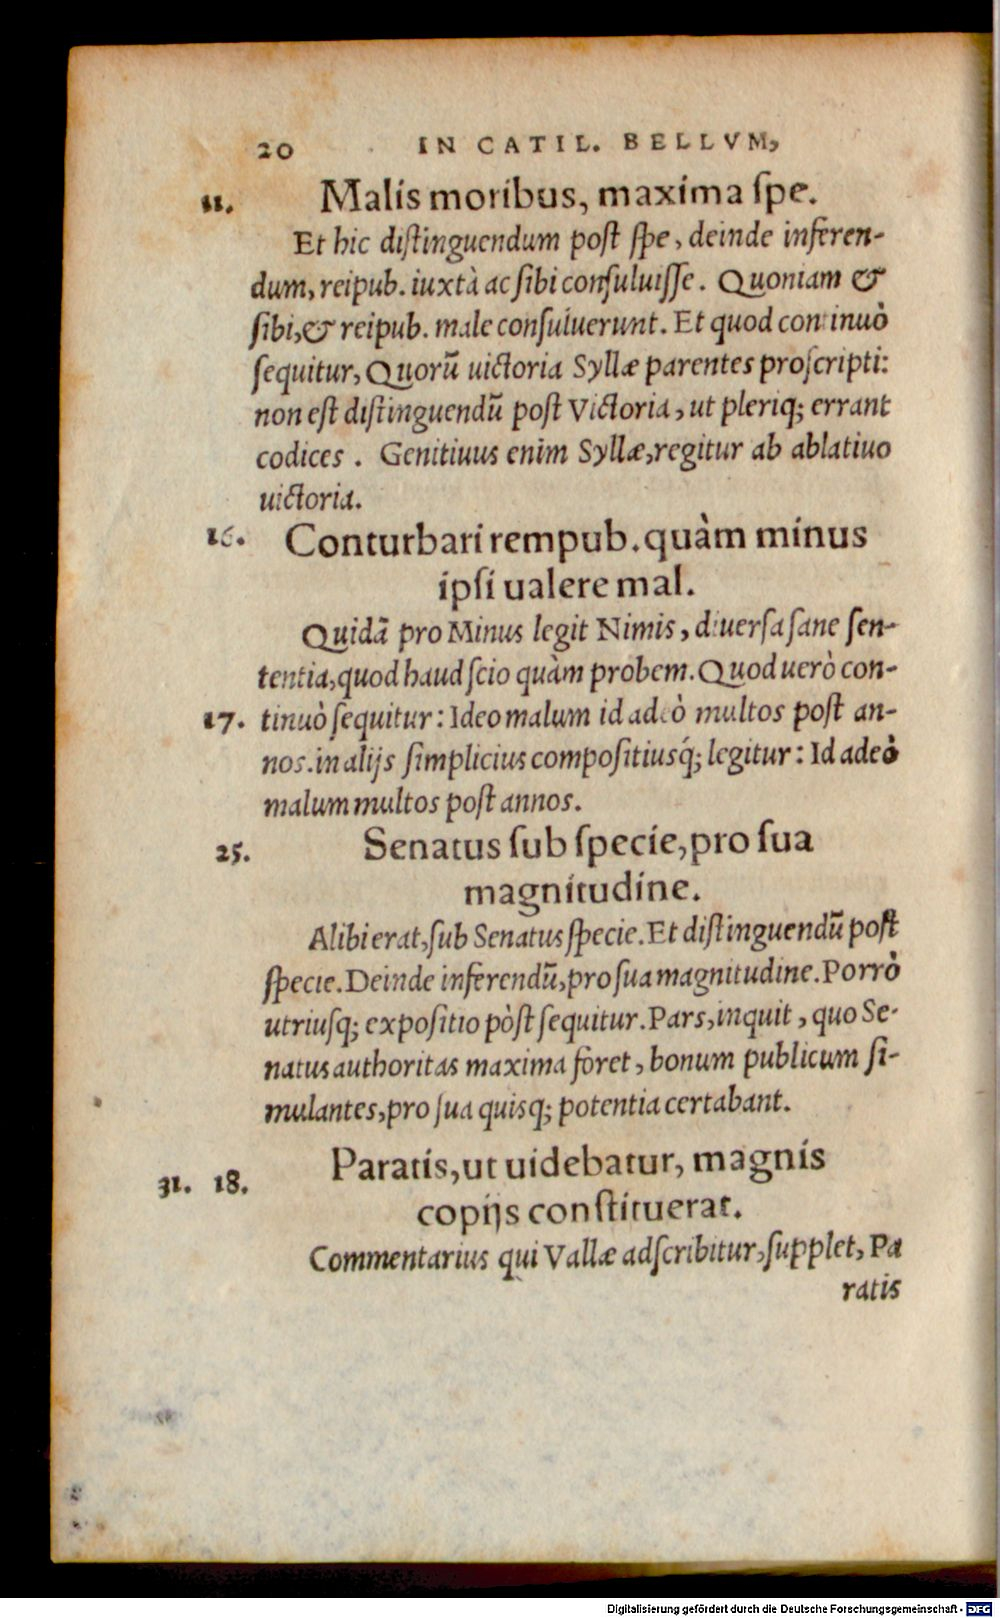 20 IN CATIL. BELLVM,
11. Malis moribus, maxima ſpe.
Et hic diſtinguendum poſt ſpe, deinde inferen-
dum, reipub. iuxtà ac ſibi conſuluiſſe. Quoniam &
ſibi,& reipub. male conſuluerunt. Et quod continuò
ſequitur, Quorū uictoria Syllæ parentes proſcripti:
non eſt diſtinguendū poſt Victoria, ut pleriq; errant
codices. Genitiuus enim Syllæ,regitur ab ablatiuo
uictoria.
16. Conturbari rempub.quàm minus
ipſi ualere mal.
Quidā pro Minus legit Nimis, diuerſa ſane ſen-
tentia,quod haud ſcio quàm probem. Quod uerò con-
17. tinuò ſequitur: Ideo malum id adeò multos poſt an-
nos.in alijs ſimplicius compoſitiusq́; legitur: Id adeò
malum multos poſt annos.
25. Senatus ſub ſpecie,pro ſua
magnitudine.
Alibi erat,ſub Senatus ſpecie.Et diſtinguendū poſt
ſpecie.Deinde inferendū,pro ſua magnitudine.Porrò
utriuſq; expoſitio pòſt ſequitur.Pars,inquit, quo Se-
natus authoritas maxima foret, bonum publicum ſi-
mulantes,pro ſua quisq; potentia certabant.
31. 18. Paratis,ut uidebatur, magnis
copijs conſtituerat.
Commentarius qui Vallæ adſcribitur,ſupplet, Pa
ratis
Digitalisierung gefördert durch die Deutsche Forschungsgemeinschaft - DFG